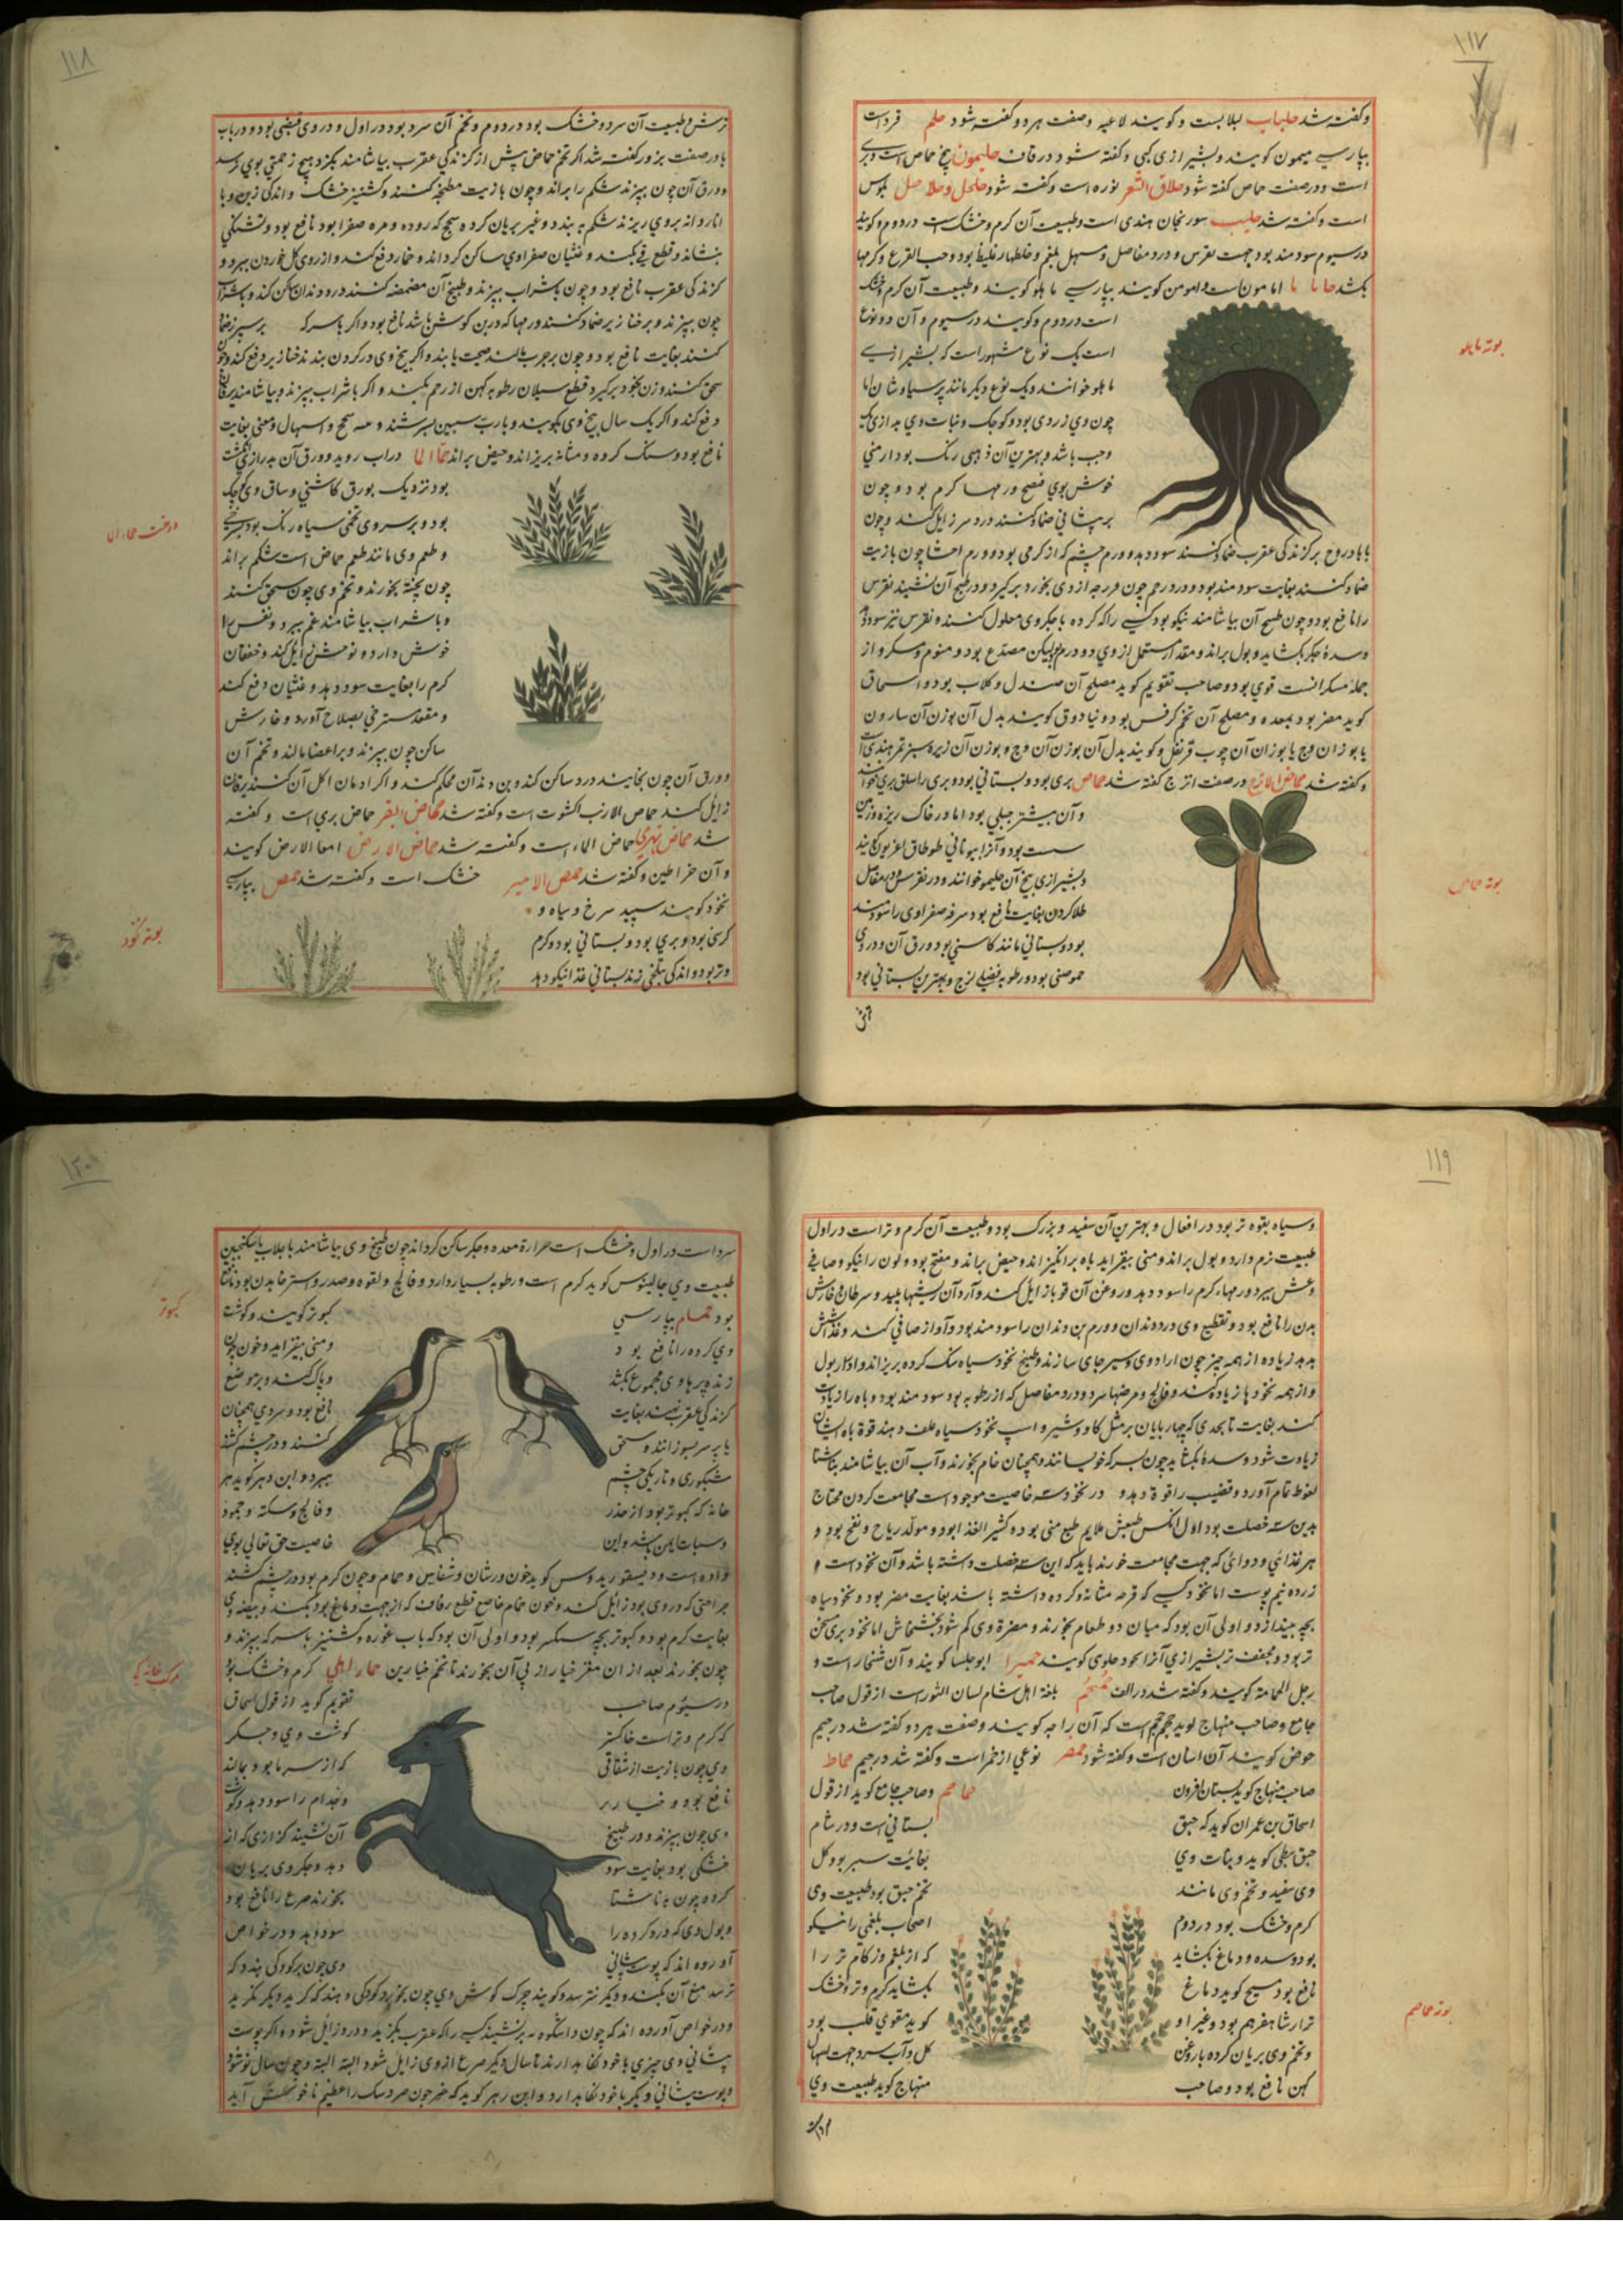 ۱۱۷
وکفته شد حلبلاب لبلابست وکویند لاعیه وصفت هردو کفته شود حلم قرد است
بپارسی میمون کویند وبشیرازی کپی وکفته شود در قاف حلیمون بیخ حماض است وبری
است ودر صفت حماض کفته شود حلاق الشعر نوره است وکفته شود
است وکفته شد حلیب سورنجان هندی است وطبیعت آن کرم وخشک است در دوم وکویند
در سیوم سودمند بود جهت نقرس و درد مفاصل ومسهل بلغم وخلطهاء غلیظ بود وحب القرع وکرمها
بکشد حاما اما مون است وامومن کویند بپارسی ماهلو کویند وطبیعت آن کرم وخشک
است در دوم وکویند در سیوم و آن دو نوع
است یک نوع مشهور است که بشیرازی
ماهلو خوانند ویک نوع دیکر مانند پرسیاوشان اما
چون وی زردی بود وکوچک ونبات وی بدرازی یک
وجب باشد وبهترین آن ذهبی رنک بود ارمنی
خوش بوی منضج ورمهاء کرم بود وچون
بر پیشانی ضماد کنند درد سر زایل کند وچون
با بادروج بر کزندکی عقرب ضماد کنند سود دهد وورم چشم که از کرمی بود وورم احشا چون بازیت
ضماد کنند بغایت سودمند بود ودرد رحم چون فرزجه از وی بخود برکیرد ودر طبیخ آن نشیند نقرس
را نافع بود وچون طبیخ آن بیاشامند نیکو بود کسی را که کرده یا جکر وی معلول کنند ونقرس نیز سود دهد
وسده جکر بکشاید وبول براند ومقدار مستعمل از وی دو درم بود لیکن مصدع بود ومنوم ومسکر واز
جمله مسکرات قوی بود وصاحب تقویم کوید مصلح آن صندل وکلاب بود واسحاق
کوید مضر بود بمعده ومصلح آن تخم کرفس بود ودنیادوق کویند بدل آن بوزن آن سارون
یا بوزان وج یا بوزان آن چوب قرنفل وکویند بدل آن بوزن آن وج وبوزن آن زیره سبز تمر هندی است
وکفته شد حماض الاترج در صفت اترج کفته شد حماض بری بود وبستانی بود وبری را سلق بری خوانند
وآن بیشتر جبلی بود اما در خاک ریزه وزمین
سست بود وآنرا بیونانی طوطاق اغریون کویند
وبشیرازی بیخ آن حلیمو خوانند ودر نقرس ودر مفاصل
طلا کردن بغایت نافع بود وسرفه صفراوی را سودمند
بود وبستانی مانند کاسنی بود ورق آن ودر وی
حموضتی بود ورطوبه فضلی لزج وبهترین بستانی بود
بوته ماهلو
بوته حماض
۱۱۸
ترش وطبیعت آن سرد وخشک بود در دوم وتخم آن سرد بود در اول و در وی قبضی بود ودر باب
با در صفت بزور کفته شد اکر تخم حماض پیش از کزندکی عقرب بیاشامند بکزد هیچ زحمتی بوی نرسد
وورق آن چون بپزند شکم را براند وچون بازیت مطبخه کنند وکشنیز خشک واندکی زیره وبا
اناردانه بروی ریزند شکم به بندد وغیر بریان کرده سحج که روده ومره صفرا بود نافع بود وتشنکی
بنشاند وقطع قی بکند وغثیان صفراوی ساکن کرداند وخمار دفع کند وآرزوی کل خوردن ببرد و
کزندکی عقرب نافع بود وچون باشراب بپزند وطبیخ آن مضمضه کنند درد دندان ساکن کند وباشراب
چون بپزند وبر خنازیر ضماد کنند ورمها که در بن کوش باشد نافع بود واکر باسرکه بر سپرز ضماد
کنند بغایت نافع بود وچون بر جرب مالند صحت یابند واکر بیخ وی در کردن بندند خنازیر دفع کند وچون
سحق کنند وزن بخود برکیرد قطع سیلان رطوبه کهن از رحم بکند واکر با شراب بپزند وبیاشامند یرقان
دفع کند واکر یک سال بیخ وی بکوبند وبارب سیبین بسرشند وسحج واسهال ومغص بغایت
نافع بود وسنک کرده ومثانه بریزاند وحیض براند حماض الما در آب روید وورق آن بدرازی انکشت
بود نزدیک بورق کاسنی وساق وی کوچک
بود وبر سر وی تخمی سیاه رنک بود بسرخی
وطعم وی مانند طعم حماض است شکم براند
چون پخته بخورند وتخم وی چون سحق کنند
وباشراب بیاشامند غم ببرد ونفس را
خوش دارد وتوحش زایل کند وخفقان
کرم را بغایت سود دهد وغثیان دفع کند
ومقعد مسترخی بصلاح آورد وخارش
ساکن چون بپزند وبر اعضا مالند وتخم آن
وورق آن چون بخایند درد ساکن کند وبن دندان محکم کند واکر ادمان اکل آن کنند یرقان
زایل کند حماض الارنب اکشوت است وکفته شد حماض البقر حماض بری است وکفته
شد حماض نهری حماض الماء است وکفته شد حماض الارض امعاء الارض کویند
وآن خراطین وکفته شد حمص الامیر خشک است وکفته شد حمص بپارسی
نخود کویند سپید سرخ وسیاه و
کرسنی بود وبری بود وبستانی بود وکرم
وتر بود واندکی بتلخی زند بستانی غذا نیکو دهد
درخت حماض الما
بوته نخود
۱۱۹
وسیاه بقوه تر بود در افعال وبهترین آن سفید وبزرک بود وطبیعت آن کرم وتر است در اول
طبیعت نرم دارد وبول براند ومنی بیفزاید باه برانکیزاند وحیض براند ومفتح بود ولون را نیکو وصافی
وعش ببرد ورمهاء کرم را سود دهد وروغن آن قوبا زایل کند وآرد آن ریشهاء پلید وسرطان وخارش
بدن را نافع بود وتقطیع وی درد دندان وورم بن دندان را سودمند بود وآواز صافی کند وغذا شش
بدهد زیاده از همه چیز چون آرد وی وسیر جای سازند وطبیخ نخود سیاه سنک کرده بریزاند وادرار بول
واز همه نخودها زیاده کند وفالج ومرضهاء سرد ودرد مفاصل که از رطوبه بود سودمند بود وباه را زیادت
کند بغایت تا بحدی که چهارپایان بر مثل کاو وشیر واسپ نخود سیاه علف دهند قوة باه ایشان
زیادت شود وسده بکشاید چون بسرکه خویسانند وهمچنان خام بخورند وآب آن بیاشامند بناشتا
نعوظ تمام آورد وقضیب را قوة دهد در نخود سه خاصیت موجود است مجامعت کردن محتاج
بدین سه خصلت بود اول آنکس طبعش ملایم طبع منی بود وکثیر الغذا بود ومولد ریاح ونفخ بود و
هر غذائی ودوائی که جهت مجامعت خورند باید که این سه خصلت داشته باشد وآن نخود است و
زرده نیم پوست اما نخود کسی که قرحه مثانه وکرده داشته باشد بغایت مضر بود ونخود سیاه
بچه بیندازد واولی آن بود که میان دو طعام بخورند ومضرة وی کم شود بخشخاش اما نخود بری مسخن
تر بود ومجفف تر بشیرازی آنرا نخود حلوی کویند حمیرا ابوحلسا کویند وآن شنجار است و
رجل الحمامة کویند وکفته شد در الف حمحم بلغة اهل شام لسان الثور است از قول صاحب
جامع وصاحب منهاج کوید حمحم است که آن را کویند وصفت هردو کفته شد در جیم
حوض کویند آن اسان است وکفته شود حمصر نوعی از خمر است وکفته شد در جیم حماط
صاحب منهاج کوید بستان افروز حماحم وصاحب جامع کوید از قول
اسحاق بن عمران کوید که حبق بستانی است ودر شام
حبق نبطی کوید ونبات وی بغایت سبز بود کل
وی سفید وتخم وی مانند تخم حبق بود طبیعت وی
کرم وخشک بود در دوم اصحاب بلغمی را نیکو
بود وسده دماغ بکشاید که از بلغم وزکام تر را
نافع بود مسیح کوید دماغ بکشاید کرم وتر وخشک
ترا رشاهفرهم بود وغیر او کوید مقوی قلب بود
وتخم وی بریان کرده باروغن کل وآب سرد جهت اسهال
کهن نافع بود وصاحب منهاج کوید طبیعت وی
بوته حماحم
۱۲۰
سرد است در اول وخشک است حرارة معده وجکر ساکن کرداند چون طبیخ وی بیاشامند باجلاب یا سکنجبین
طبیعت وی جالینوس کوید کرم است ورطوبه بسیار دارد وفالج ولقوه وصدر واسترخا بدن بود
بود حمام بپارسی کبوتر کویند وکوشت
وی کرده را نافع بود ومنی بیفزاید وخون
زنده وپرها وی مجموع بکشد وپاک کنند وبر موضع
کزندکی عقرب نهند بغایت نافع بود وسردی همچنان
یا پر سر بسوزانند وسحق کنند ودر چشم کشند
شبکوری وتاریکی چشم ببرد وابن زهر کوید هر
خانه که کبوتر بود از خدر وفالج وسکته وجمود
وسبات ایمن باشد واین خاصیت حق تعالی بوی
داده است ودیسقوریدوس کوید خون ورشان وشفانین وحمام وچون کرم بود در چشم کشند
جراحتی که در وی بود زایل کند وخون حمام خاصه قطع رعاف که از حجب دماغ بود بکند وبیضه وی
بغایت کرم بود وکبوتر بچه سبکتر بود واولی آن بود که با آب غوره وکشنیز باسرکه بپزند و
چون بخورند بعد از آن مغز خیار از پی آن بخورند یا تخم خیارین حمار اهلی کرم وخشک بود
در سیوم صاحب تقویم کوید از قول اسحاق
که کرم وتر است خاکستر کوشت وی وجکر
وی چون بازیت از شقاقی که از سرما بود بمالند
نافع بود وخنازیر وجذام را سود دهد وکوشت
وی چون بپزند ودر طبیخ آن نشینند کزازی که از
خشکی بود بغایت سود دهد وجکر وی بریان
کرده چون بناشتا بخورند صرع را نافع بود
وبول وی که درد کرده را سود دهد ودر خواص
آورده اند که پوست پیشانی وی چون بر کودکی بندند که
ترسد منع آن بکند ودیکر نترسد وکویند چرک کوش وی چون بخورد کودکی دهند که کرید دیکر نکرید
ودر خواص آورده اند که چون واشکونه بر نشیند کسی را که عقرب بکزد درد زایل شود واکر پوست
پیشانی وی چیزی باخود نکاه دارند تا سال دیکر صرع از وی زایل شود البته البته وچون سال نو شود
وپوست پیشانی دیکر باخود نکاه دارد وابن زهر کوید که خر چون مر سک را عظیم ناخوش آید
کبوتر